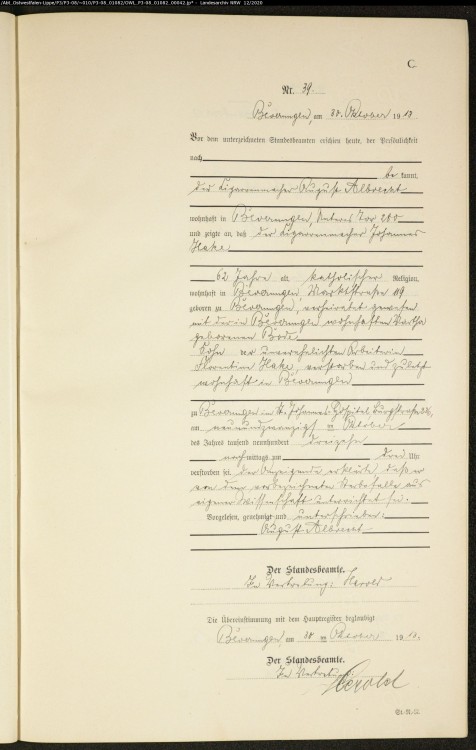 /Abt_Ostwestfalen-Lippe/P3/P3-08/~010/P3-08_01082/OWL_P3-08_01082_00042.jp* - Landesarchiv NRW 12/2020
C.
Nr. 39.
Beverungen, am 30. Oktober 1913.
Vor dem unterzeichneten Standesbeamten erschien heute, der Persönlichkeit
nach
be kannt,
der Zigarrenmacher August Albrecht
wohnhaft in Beverungen, Unteres Tor 200
und zeigte an, daß der Zigarrenmacher Johannes
Hake
62 Jahre alt, katholischer Religion,
wohnhaft in Beverungen, Marktstraße 119
geboren zu Beverungen, verheiratet gewesen
mit der in Beverungen wohnhaften Martha
geborenen Bode,
Sohn der unverehelichten Arbeiterin
Florentine Hake, verstorben und zuletzt
wohnhaft in Beverungen
zu Beverungen im St. Johannes Hospital, Burgstraße
am neunundzwanzigsten Oktober
des Jahres tausend neunhundert dreizehn
nachmittags um drei Uhr
verstorben sei. Der Anzeigende erklärte, daß er
von dem vorbezeichneten Sterbefalle aus
eigener Wissenschaft unterrichtet sei.
Vorgelesen, genehmigt und unterschrieben:
August Albrecht
Der Standesbeamte.
In Vertretung: Herold
Die Übereinstimmung mit dem Hauptregister beglaubigt
Beverungen, am 30 ten Oktober 1913.
Der Standesbeamte.
In Vertretung:
Herold
St.-R.-C.